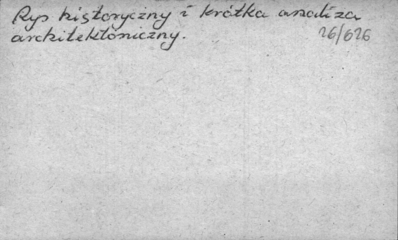 Rys historyczny i krótka analiza
architektoniczny.
26/626